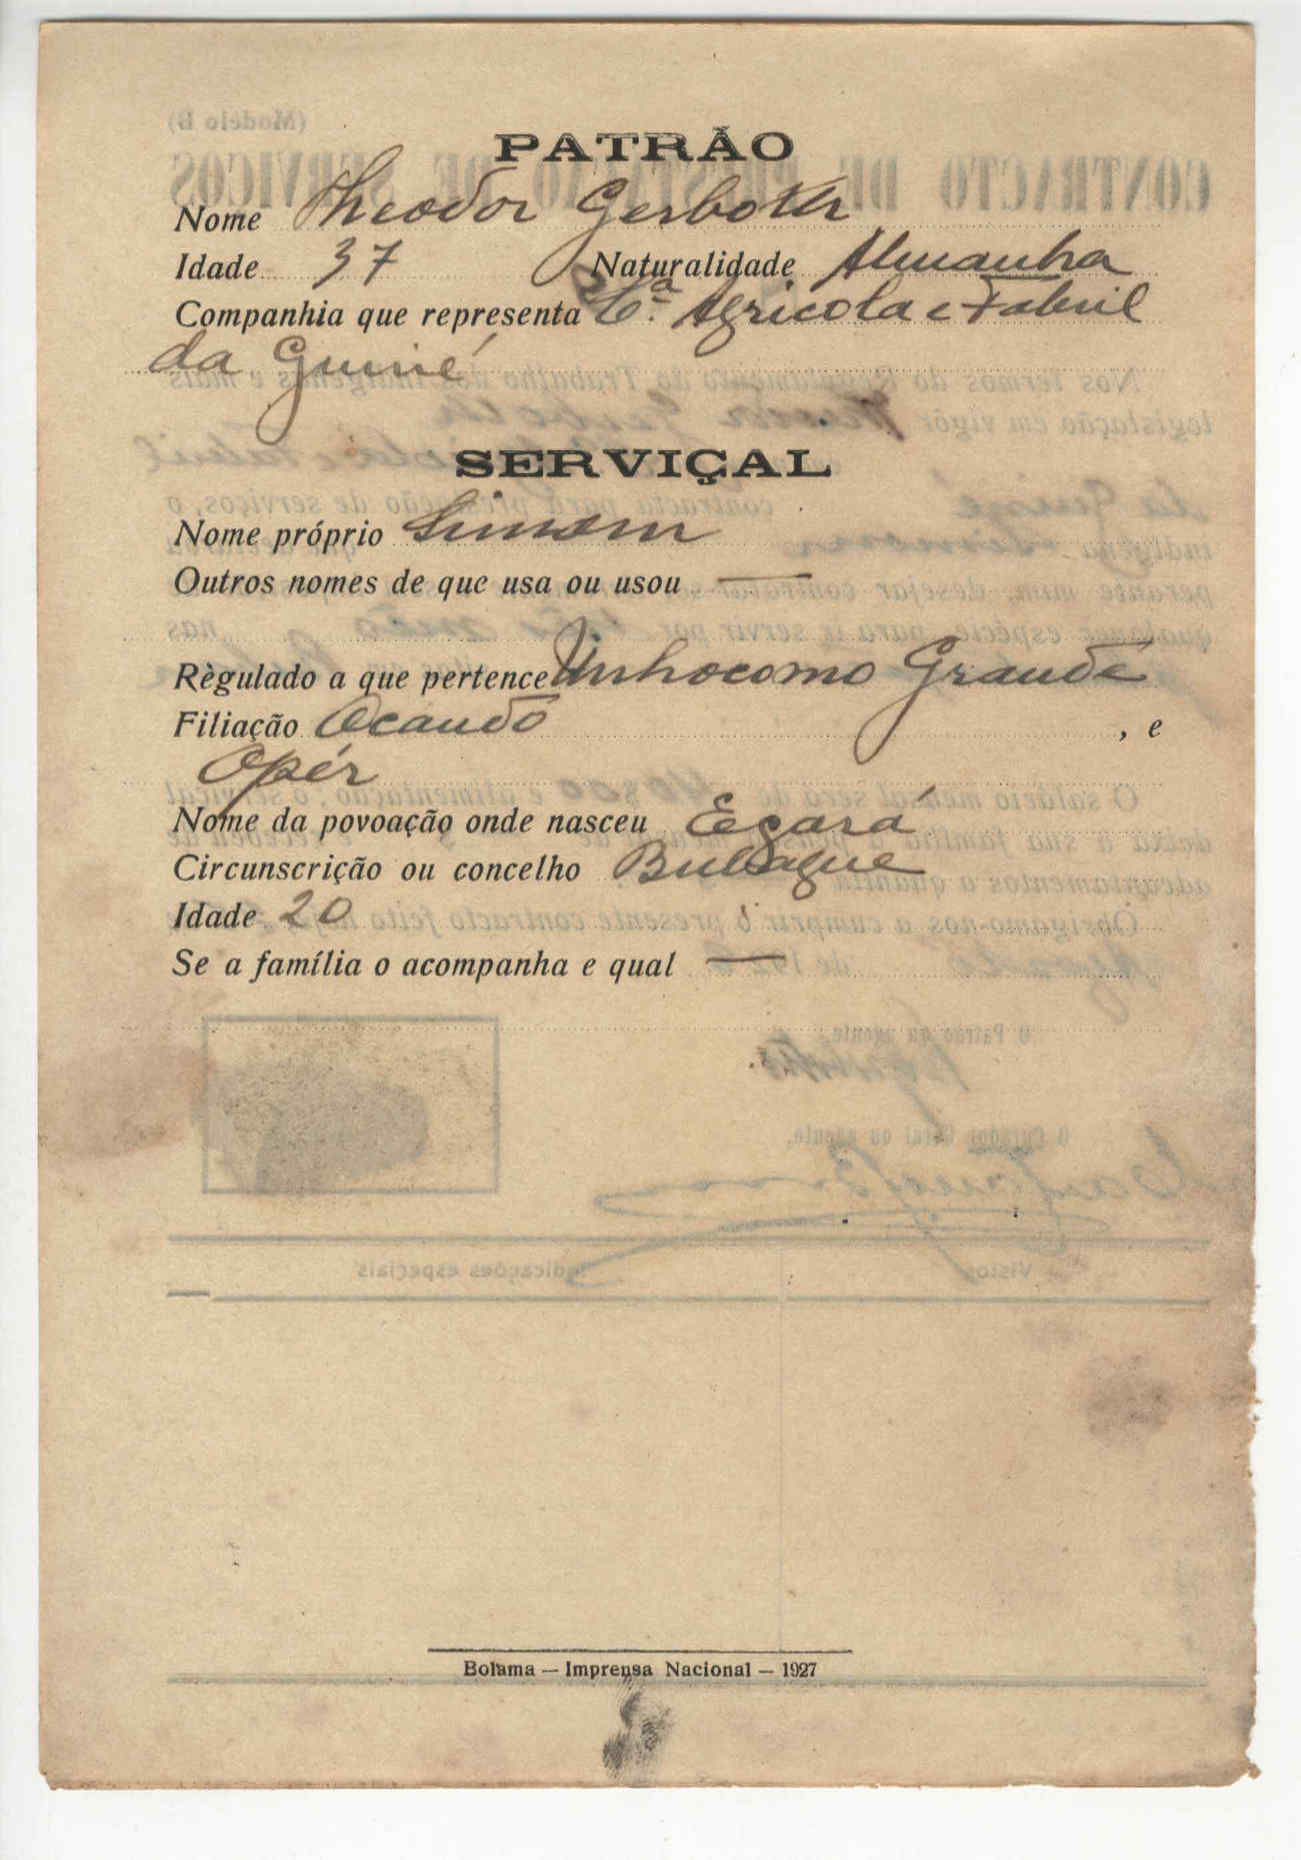 PATRÃO
Nome Theodor Gerboth
Idade 37 Naturalidade Almanha
Companhia que representa Cª. Agricola e Fabril
da Guiné
SERVIÇAL
Nome próprio Simom
Outros nomes de que usa ou usou —
Règulado a que pertence Unhocomo Grande
Filiação Ocando , e
Opér
Nome da povoação onde nasceu Egará
Circunscrição ou concelho Bubaque
Idade 20
Se a família o acompanha e qual —
Bolama — Imprensa Nacional — 1927